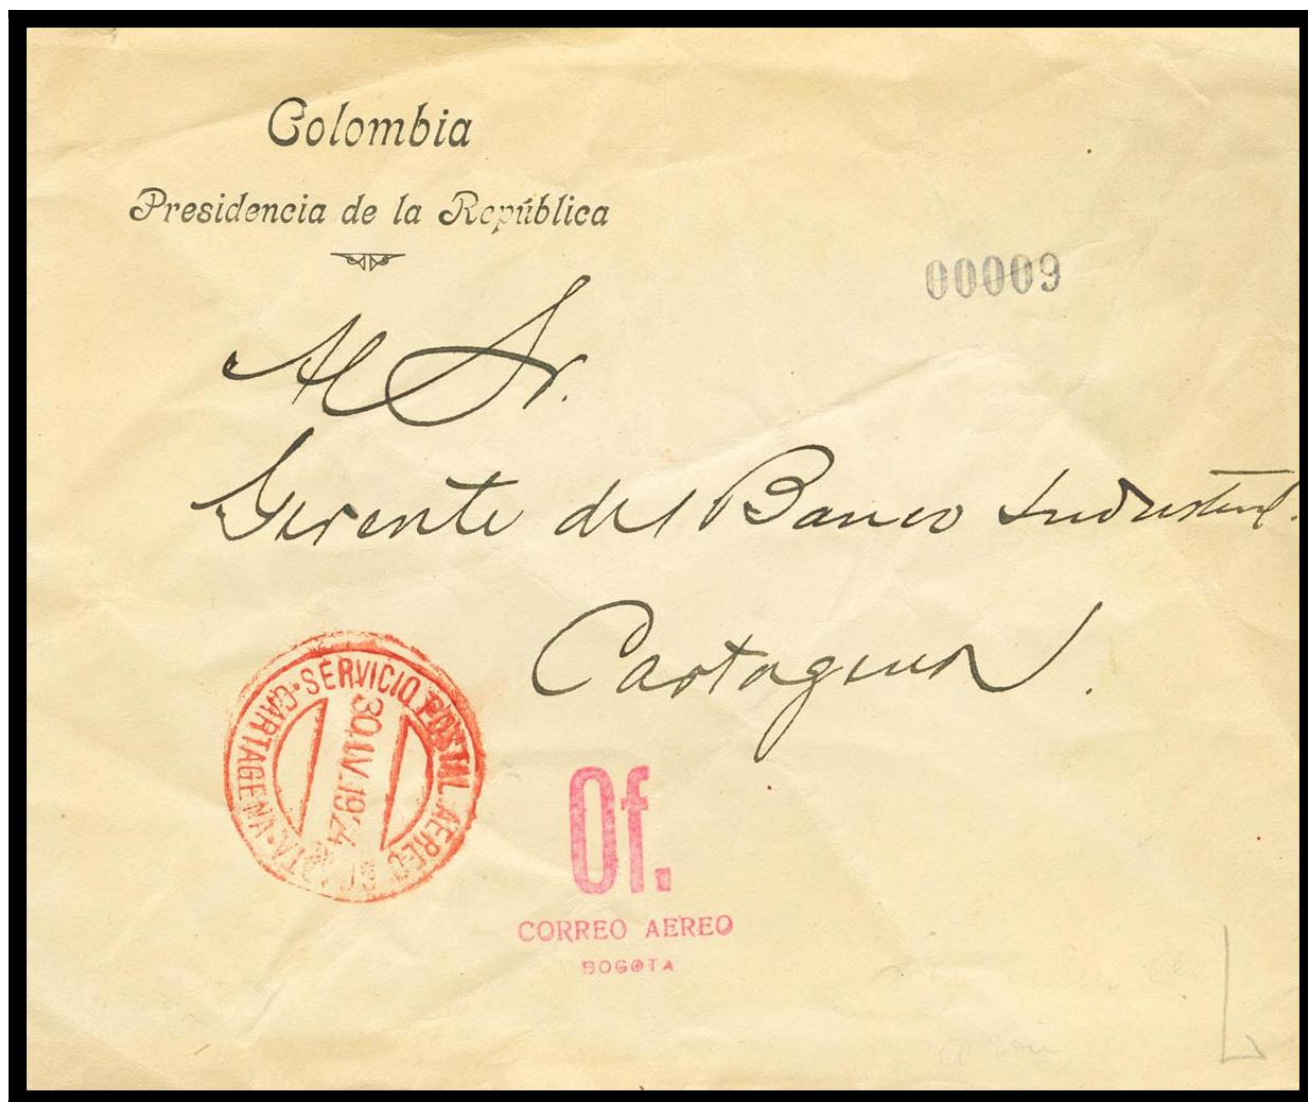 Colombia
Presidencia de la República
00009
Al Sr.
Gerente del Banco Industrial.
Cartagena.
SERVICIO POSTAL AEREO SCADTA · CARTAGENA
30.IV.1924
Of.
CORREO AEREO
BOGOTA